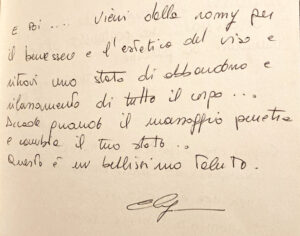 E poi .... Vieni dalla romy per
il benessere e l'estetica del viso e
ritrovi uno stato di abbandono e
rilassamento di tutto il corpo ...
Accade quando il massaggio penetra
e cambia il tuo stato ..
Questo è un bellissimo Talento.